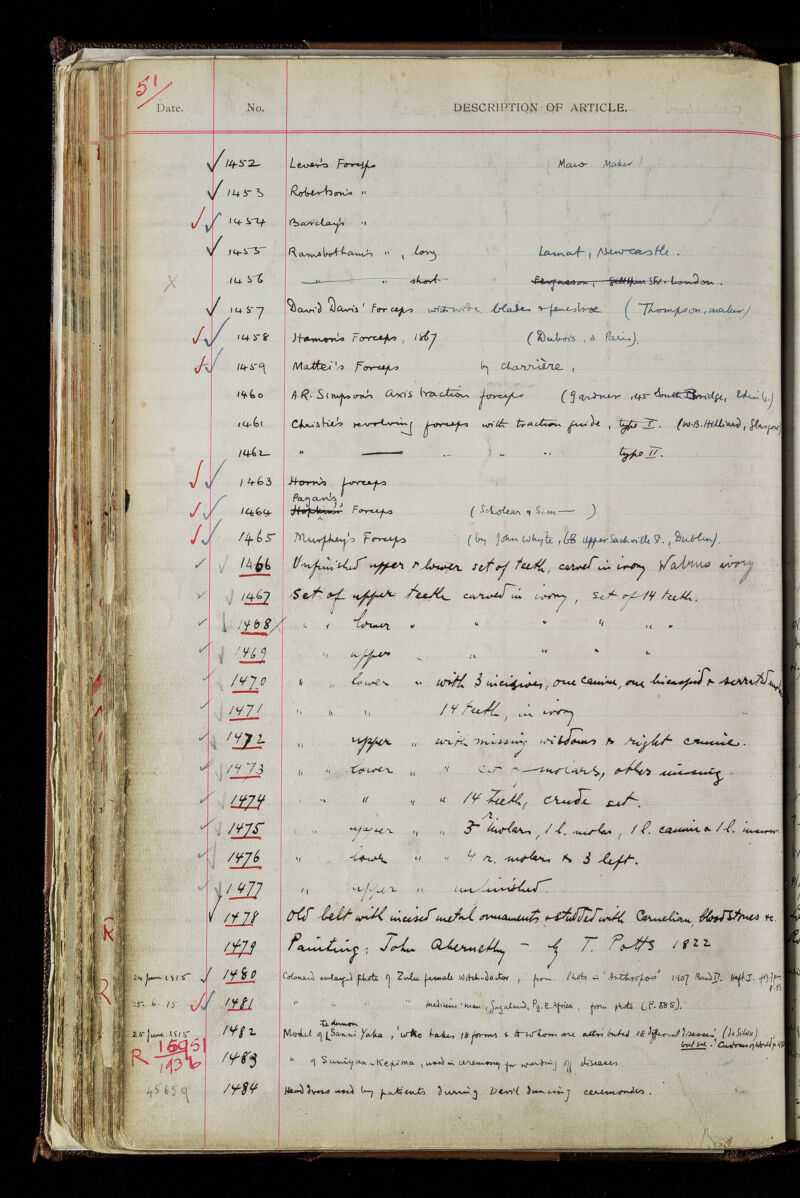 51
Date. No. DESCRIPTION OF ARTICLE.
1452 Lever's Forceps (Maw Maker)
1453 Robertson's "
1454 Barclay's "
1455 Ramsbotham's ", long Lamat, Newcastle.
1456 " " short London.
1457 David Davis' Forceps with wide blades & fenestrae (Thompson, maker)
1458 Hamon's Forceps, 1867 (Dubois, à Paris).
1459 Mattei's Forceps by Charrière,
1460 A.R. Simpson's axis traction forceps (Gardner, 45 South Bridge, Edinb.)
1461 Christie's revolving forceps with traction guide, type I. (W.B. Hilliard, Glasgow)
1462 " " " " type II.
1463 Horn's forceps
1464 Pagan's Forceps (Scholear & Sim)
1465 Murphey's Forceps (by John Whyte, 68 Upper Sackville St., Dublin).
1466 Unfinished upper & lower set of teeth, carved in ivory Walrus ivory
1467 Set of upper teeth carved in ivory, set of 14 teeth.
1468 " " lower " " " " " "
1469 " upper " " " " "
1470 " " lower " with 3 incisives, one canine, one bicuspid &
1471 " " " 14 teeth, in ivory
1472 " upper " with missing wisdoms & right canine.
1473 " " lower " " molars, others missing
1474 " " " " 14 teeth, crude set.
1475 " " upper " " 3 r. molars, 1 l. molar, 1 l. canine & 1 l.
1476 " lower " " 4 r. molars & 3 left.
1477 " upper " unfinished.
1478 Old belt with incised metal ornaments & studded with Cornelian, bloodstones &c
1479 Painting: John Abernethy - by T. Potts 1822
24 June 1915 1480 Coloured enlarged photo of Zulu female witch-doctor, from Photo in 'Anthropos' 1907 Band II. Heft I.
25. 6. 15 1481 " " " " medicine man, Sogaland, Pg. E. Africa, from photo (P. 885).
25 June 1915 1482 Model of the demon Sanni Yaka, who takes 18 forms & to whom are attributed 18 different diseases (De Silva)
but see 'Customs of World p.
R 16951
1936 1483 " of Suniyan-Kepima, used in ceremony for warding off diseases
45659 1484 Head dress used by patients during Devil dancing ceremonies.
R
R